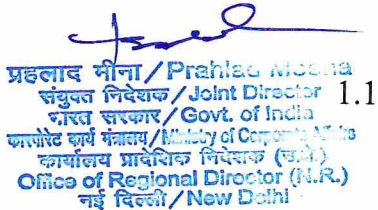 प्रहलाद मीना / Prahlad Meena
संयुक्त निदेशक / Joint Director 1.1
भारत सरकार / Govt. of India
कारपोरेट कार्य मंत्रालय / Ministry of Corporate Affairs
कार्यालय प्रादेशिक निदेशक (उ.क्षे.)
Office of Regional Director (N.R.)
नई दिल्ली / New Delhi